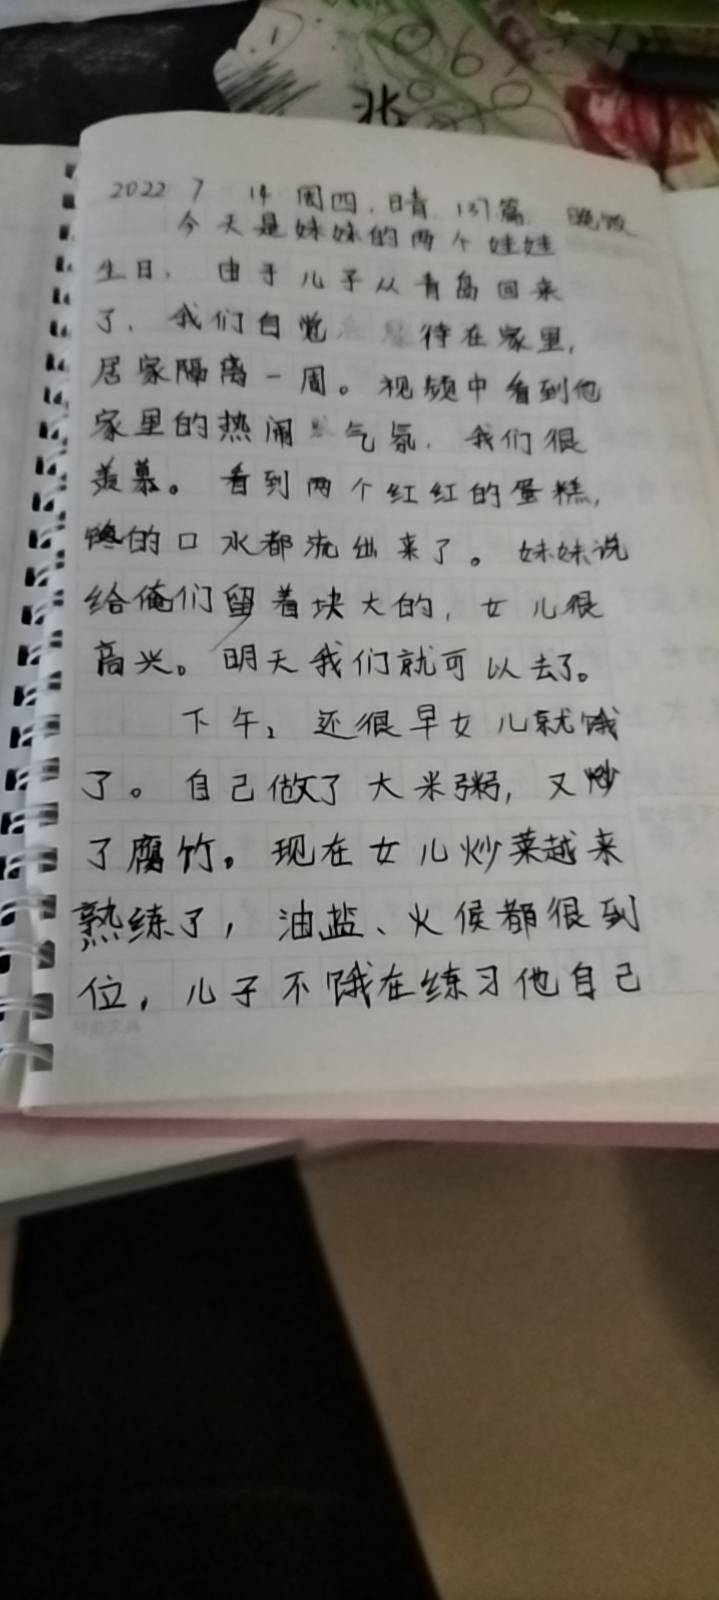 张
2022 7 14 周四.晴.137篇 晚饭
今天是妹妹的两个娃娃
生日.由于儿子从青岛回来
了.我们自觉 待在家里,
居家隔离一周。视频中看到他
家里的热闹 气氛.我们很
羡慕。看到两个红红的蛋糕,
馋的口水都流出来了。妹妹说
给俺们留着块大的,女儿很
高兴。明天我们就可以去了。
下午,还很早女儿就饿
了。自己做了大米粥,又炒
了腐竹。现在女儿炒菜越来
熟练了,油盐、火候都很到
位,儿子不饿在练习他自己